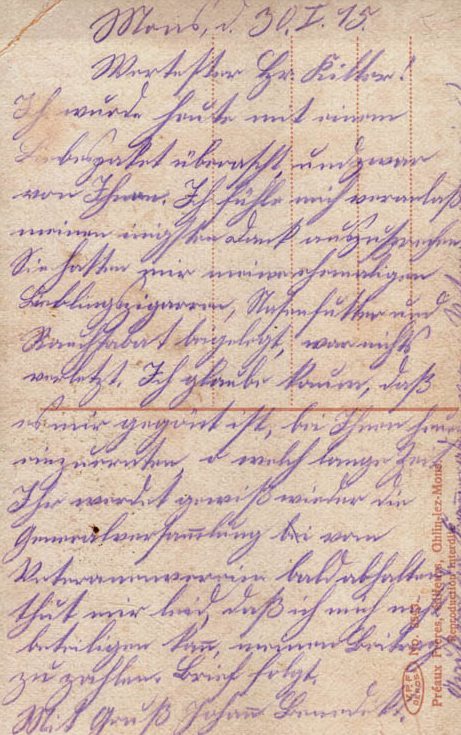 Mons, d. 30.I.15.
Wertester Hr. Killer!
Ich wurde heute mit einem
Liebespaket überascht, und zwar
von Ihnen. Ich fühle mich veranlaßt
meinen innigsten Dank auszusprechen
Sie hatten mir meine ehemaligen
Lieblingszigarren, Nasenfutter und
Rauchtabat beigelegt, war nichts
verletzt. Ich glaube kaum, daß
es mir gegönt ist, bei Ihnen heuer
einzuernten, o welch lange Zeit
Ihr werdet gewiß wieder die
Generalversammlung bei vom
Veteranenverein bald abhalten
thut mir leid, daß ich mich nicht
beteiligen kann, meinen Beitrag
zu zahlen. Brief folgt.
Mit Gruß Johann Benedikt.
Préaux Frères, Editeurs, Ghlin-lez-Mons
Reproduction interdite